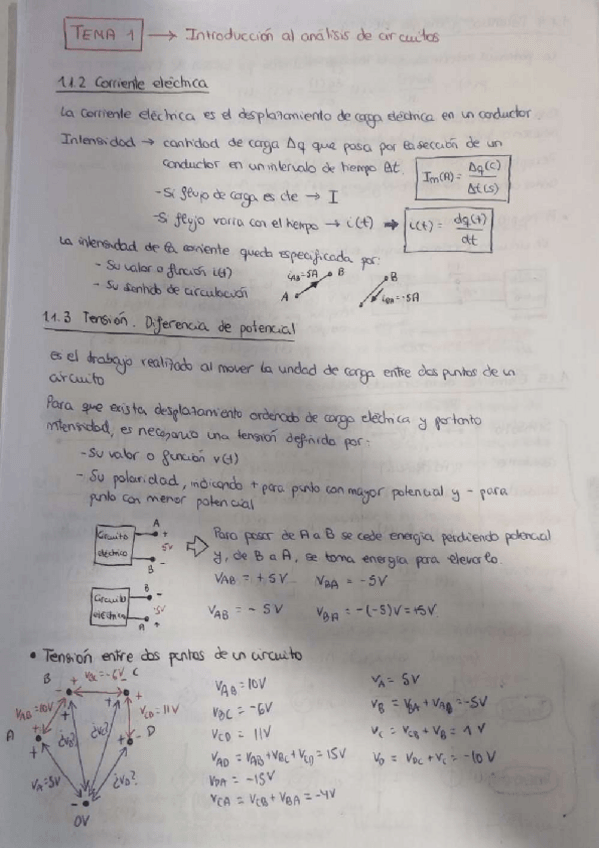 TEMA 1 → Introducción al análisis de circuitos
1.1.2 Corriente eléctrica
La corriente eléctrica es el desplazamiento de carga eléctrica en un conductor
Intensidad → cantidad de carga Δq que pasa por la sección de un
conductor en un intervalo de tiempo Δt.
Im(A) = Δq(C) / Δt(s)
- Si flujo de carga es cte → I
- Si flujo varía con el tiempo → i(t) ➡ i(t) = dq(t) / dt
La intensidad de la corriente queda especificada por:
- Su valor o función i(t)
- Su sentido de circulación
A iAB=5A B
B iBA=-5A
1.1.3 Tensión. Diferencia de potencial
es el trabajo realizado al mover la unidad de carga entre dos puntos de un
circuito
Para que exista desplazamiento ordenado de carga eléctrica y por tanto
intensidad, es necesario una tensión definida por:
- Su valor o función v(t)
- Su polaridad, indicando + para punto con mayor potencial y - para
punto con menor potencial
Circuito eléctrico A + 5V B -
Para pasar de A a B se cede energía perdiendo potencial
y, de B a A, se toma energía para elevarlo.
VAB = +5V VBA = -5V
Circuito eléctrico B - -5V A +
VAB = -5V VBA = -(-5)V = +5V
• Tensión entre dos puntos de un circuito
B + VBC=-6V - C
VAB=10V
VCD=11V
A
D
VA=5V
¿VB?
¿VC?
¿VD?
0V
VAB = 10V
VBC = -6V
VCD = 11V
VAD = VAB + VBC + VCD = 15V
VDA = -15V
VCA = VCB + VBA = -4V
VA = 5V
VB = VBA + VA0 = -5V
VC = VCB + VB = 1V
VD = VDC + VC = -10V